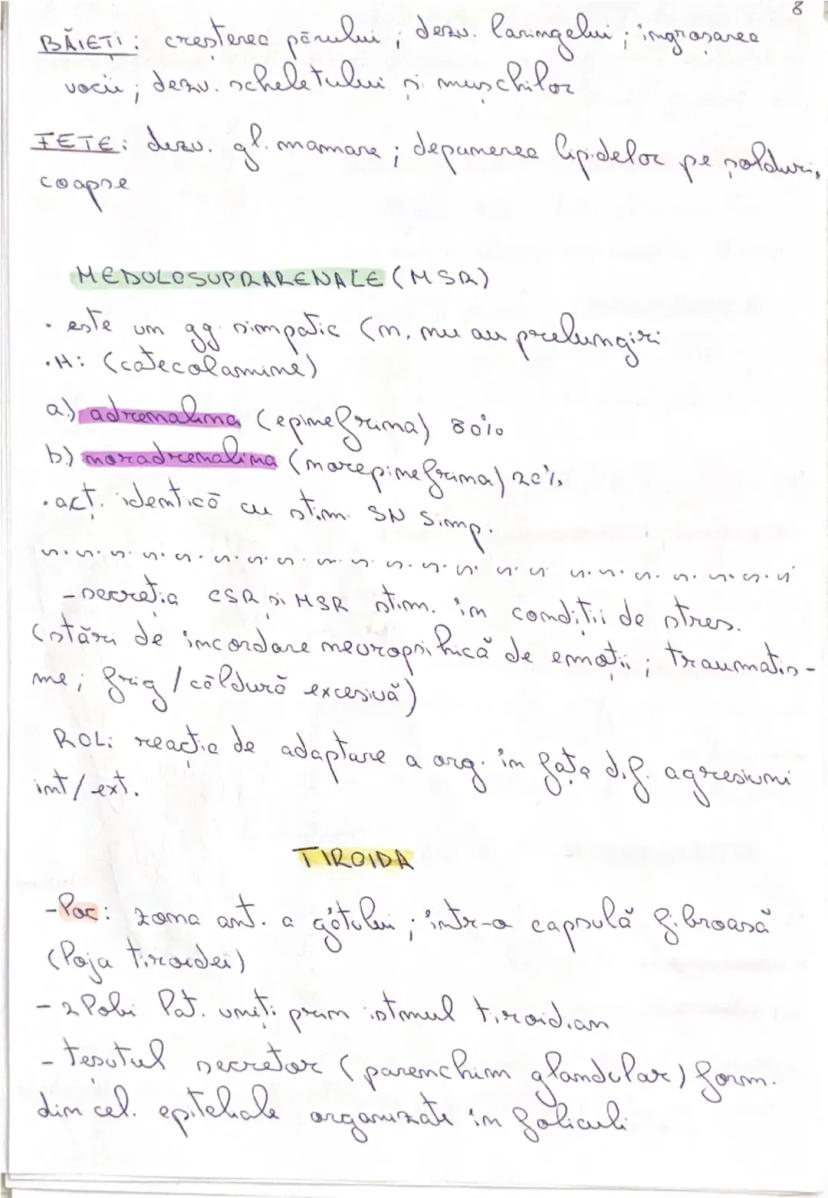 8
BĂIEȚI: creșterea părului; dezv. laringelui; îngroșarea
vocii; dezv. scheletului și mușchilor
FETE: dezv. gl. mamare; depunerea lipidelor pe șolduri,
coapse
MEDULOSUPRARENALE (MSR)
• este un gg. simpatic (n. nu au prelungiri
• H: (catecolamine)
a) adrenalina (epinefrina) 80%
b) noradrenalina (norepinefrina) 20%
• acț. identică cu stim. SN simp.
- secreția CSR și MSR stim. în condiții de stres.
(stări de încordare neuropsihică de emoții; traumatis-
me; frig / căldură excesivă)
ROL: reacția de adaptare a org. în fața dif. agresiuni
int/ext.
TIROIDA
- loc: zona ant. a gâtului; într-o capsulă fibroasă
(loja tiroidei)
- 2 lobi lat. uniți prin istmul tiroidian
- țesutul secretor (parenchim glandular) form.
din cel. epiteliale organizate în foliculi